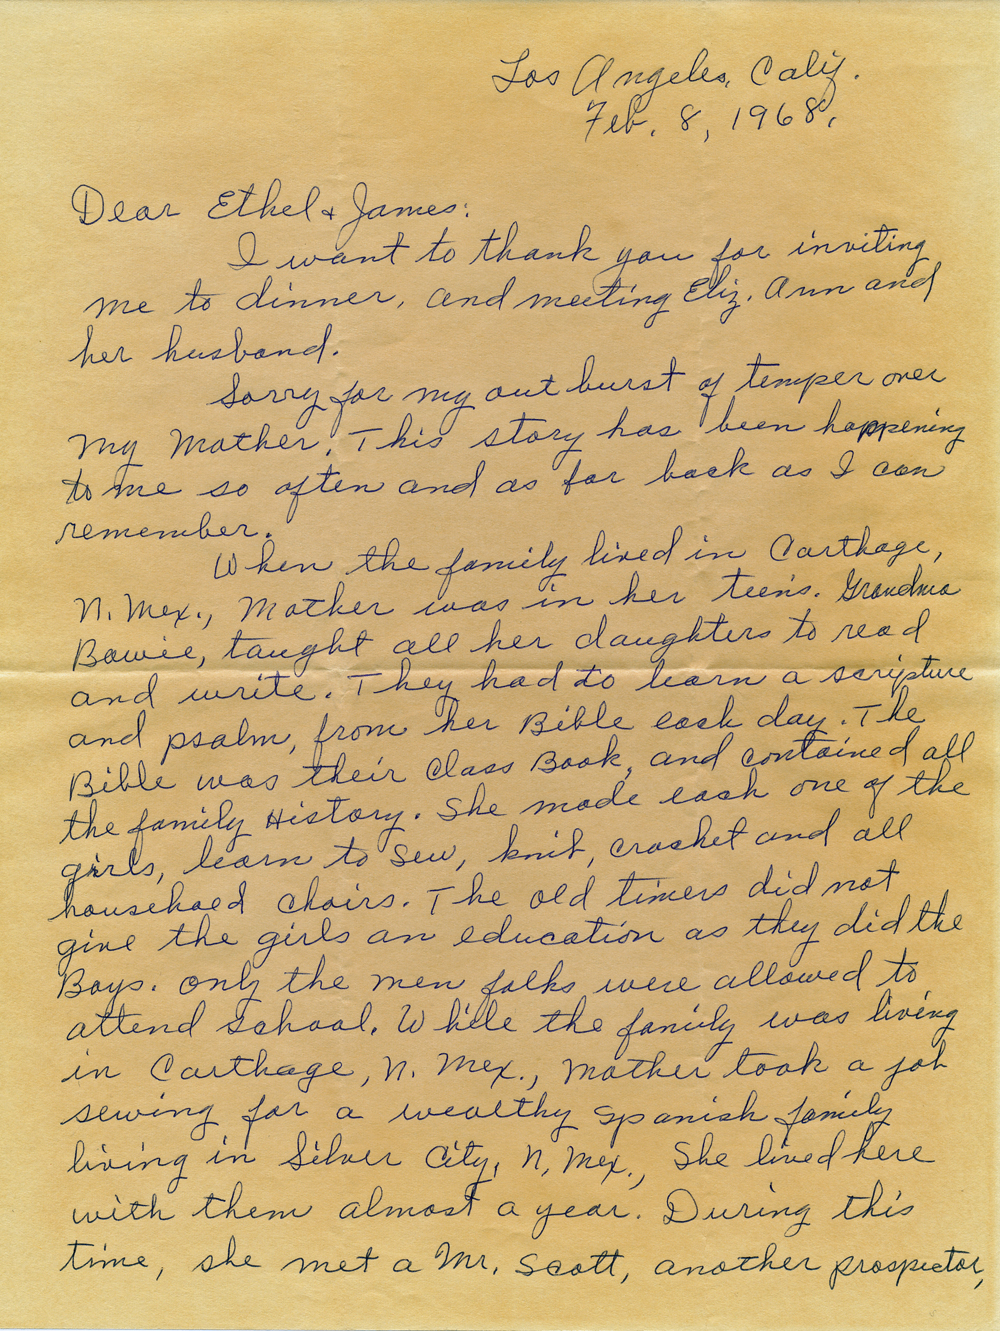 Los Angeles, Calif.
Feb. 8, 1968.
Dear Ethel & James:
I want to thank you for inviting
me to dinner, and meeting Eliz. Ann and
her husband.
Sorry for my out burst of temper over
my Mother. This story has been happening
to me so often and as far back as I can
remember.
When the family lived in Carthage,
N. Mex., Mother was in her teens. Grandma
Bowie, taught all her daughters to read
and write. They had to learn a scripture
and psalm, from her Bible each day. The
Bible was their Class Book, and contained all
the family History. She made each one of the
girls, learn to sew, knit, crochet and all
househoed choirs. The old timers did not
give the girls an education as they did the
Boys. Only the men folks were allowed to
attend School. While the family was living
in Carthage, N. Mex., Mother took a job
sewing for a wealthy Spanish family
living in Silver City, N, Mex., She lived here
with them almost a year. During this
time, she met a Mr. Scott, another prospector,